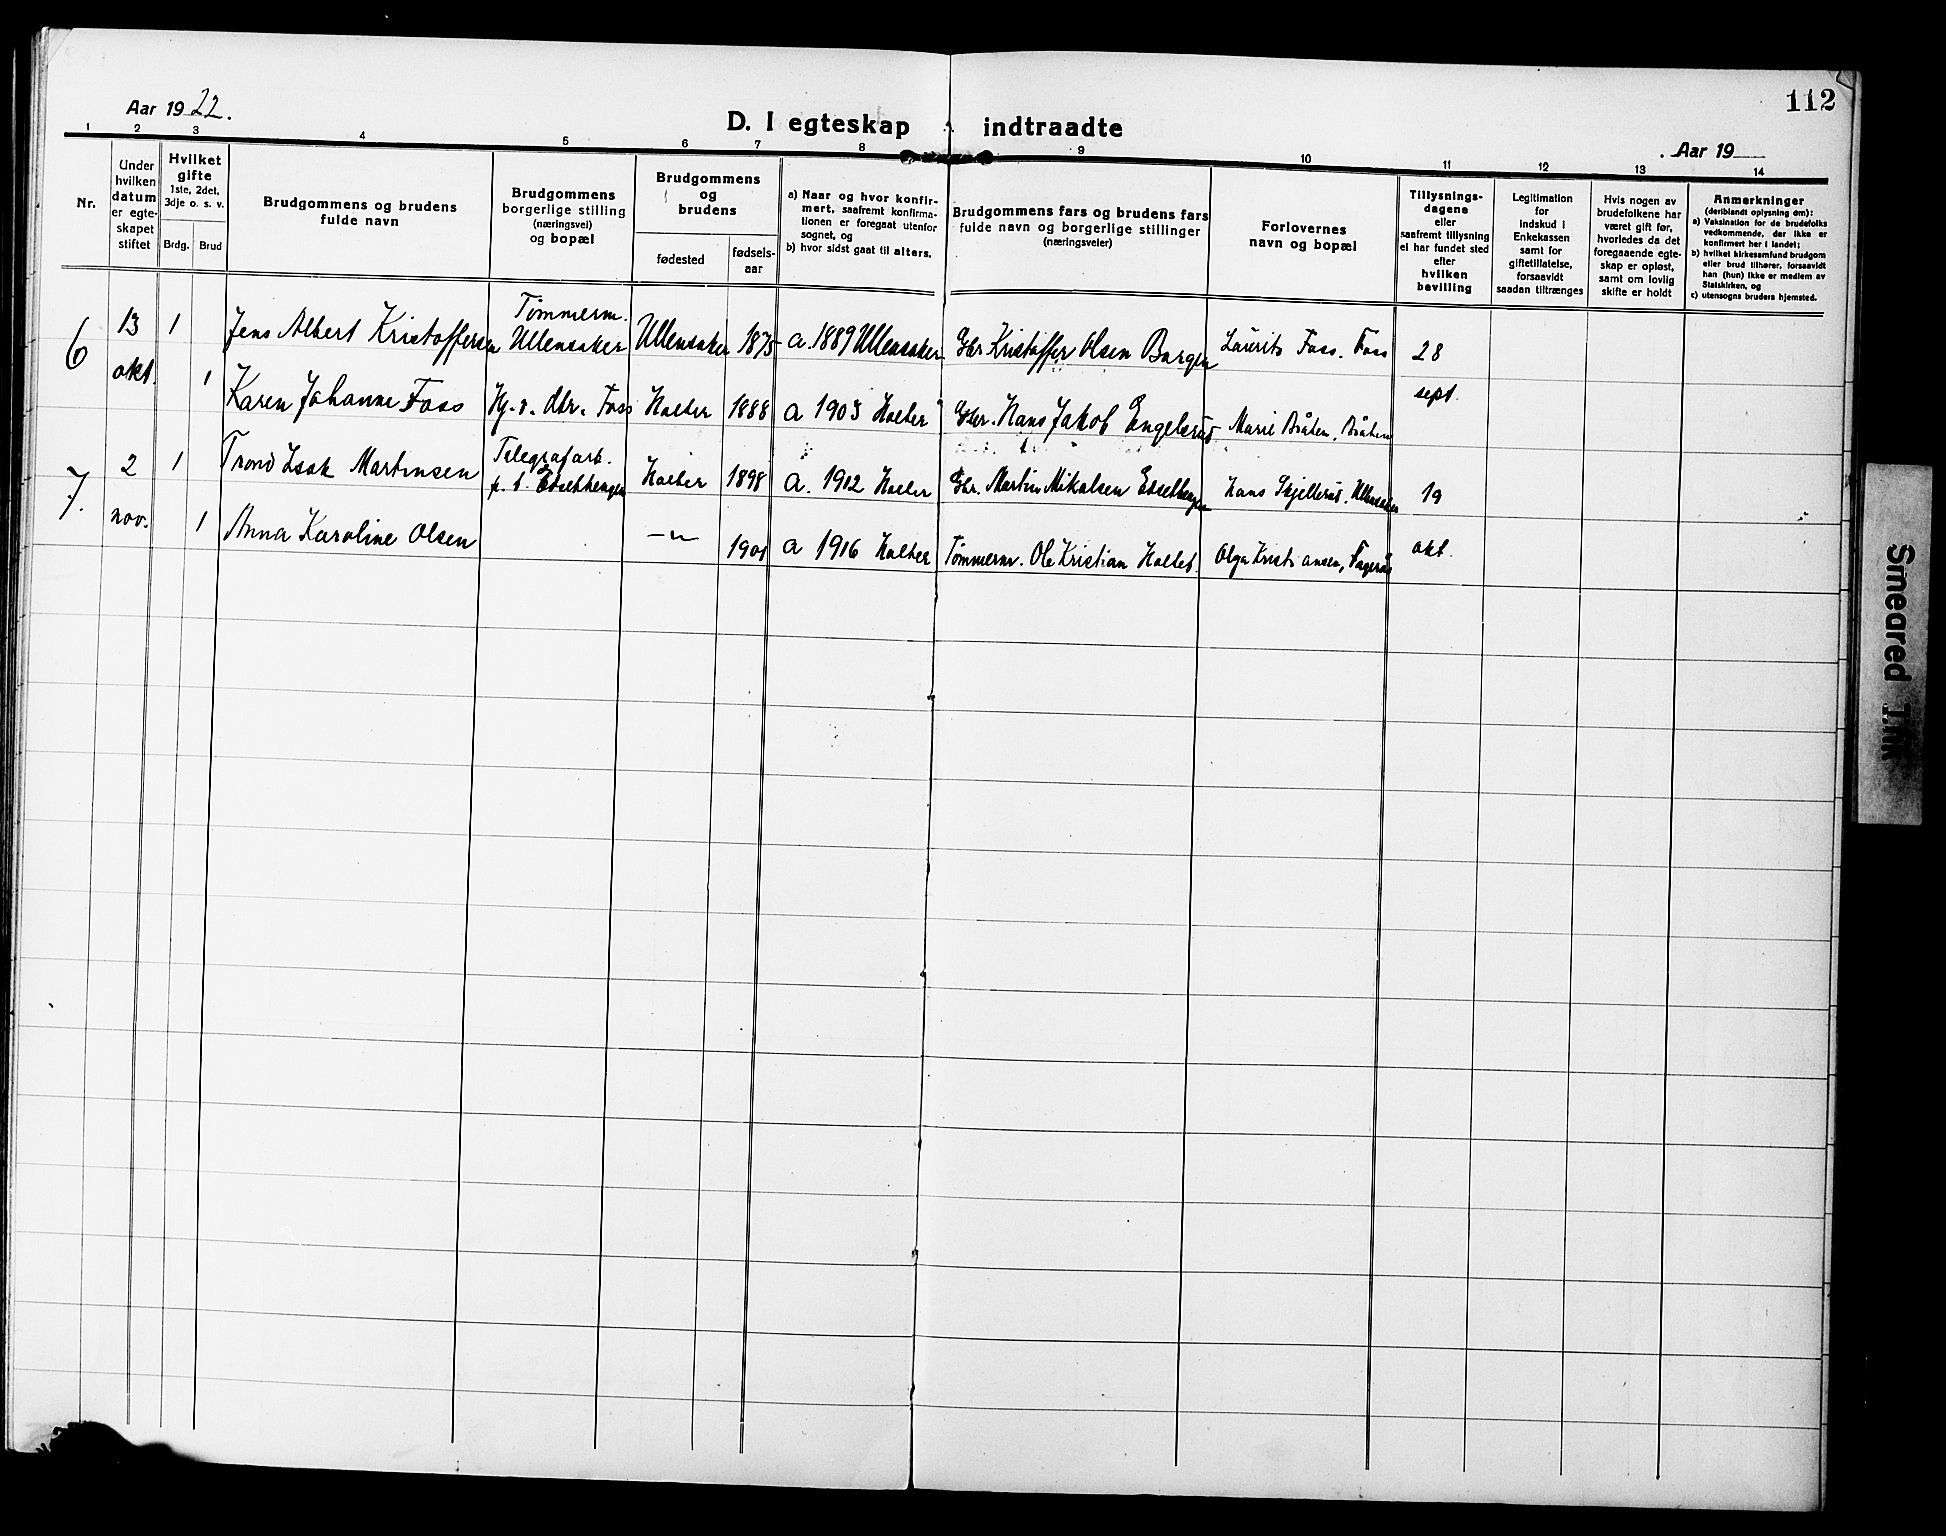 112
Aar 1922.
D. I egteskap indtraadte
Aar 19
1 2 3 4 5 6 7 8 9 10 11 12 13 14
Nr.
Under hvilken datum er egte-skapet stiftet
Hvilket gifte 1ste, 2det, 3dje o. s. v.
Brdg. Brud
Brudgommens og brudens fulde navn
Brudgommens borgerlige stilling (næringsvei) og bopæl
Brudgommens og brudens
fødested
fødsels-aar
a) Naar og hvor konfir-mert, saafremt konfirma-tionen er foregaat utenfor sognet, og
b) hvor sidst gaat til alters.
Brudgommens fars og brudens fars fulde navn og borgerlige stillinger (næringsveier)
Forlovernes navn og bopæl
Tillysnings-dagene eller saafremt tillysning ei har fundet sted efter hvilken bevilling
Legitimation for indskud i Enkekassen samt for giftetillatelse, forsaavidt saadan tiltrænges
Hvis nogen av brudefolkene har været gift før, hvorledes da det foregaaende egte-skap er opløst, samt om lovlig skifte er holdt
Anmerkninger (deriblandt oplysning om):
a) Vaksination for de brudefolks vedkommende, der ikke er konfirmert her i landet;
b) hvilket kirkesamfund brudgom eller brud tilhører, forsaavidt han (hun) ikke er medlem av Statskirken, og
c) utensogns bruders hjemsted.
6 13 okt. 1 Jens Albert Kristoffersen Tømmerm. Ullensaker Ullensaker 1875 a. 1889 Ullensaker Gbr Kristoffer Olsen Borgen Laurits Foss. Foss 28 sept.
1 Karen Johanne Foss Hj. v. dtr. Foss Holter 1888 a 1903 Holter Gbr. Hans Jakob Engelsrud Marie Bråten, Bråten
7. 2 nov. 1 Trond Isak Martinsen Telegrafarb. Holter 1898 a. 1912 Holter Gbr. Martin Mikalsen Hans Skjellerud, Ullensaker 19 okt.
1 Anna Karoline Olsen —"— 1901 a 1916 Holter Tømmerm. Ole Kristian Holter. Olga Kristiansen, Fagerås
Smeared Ink